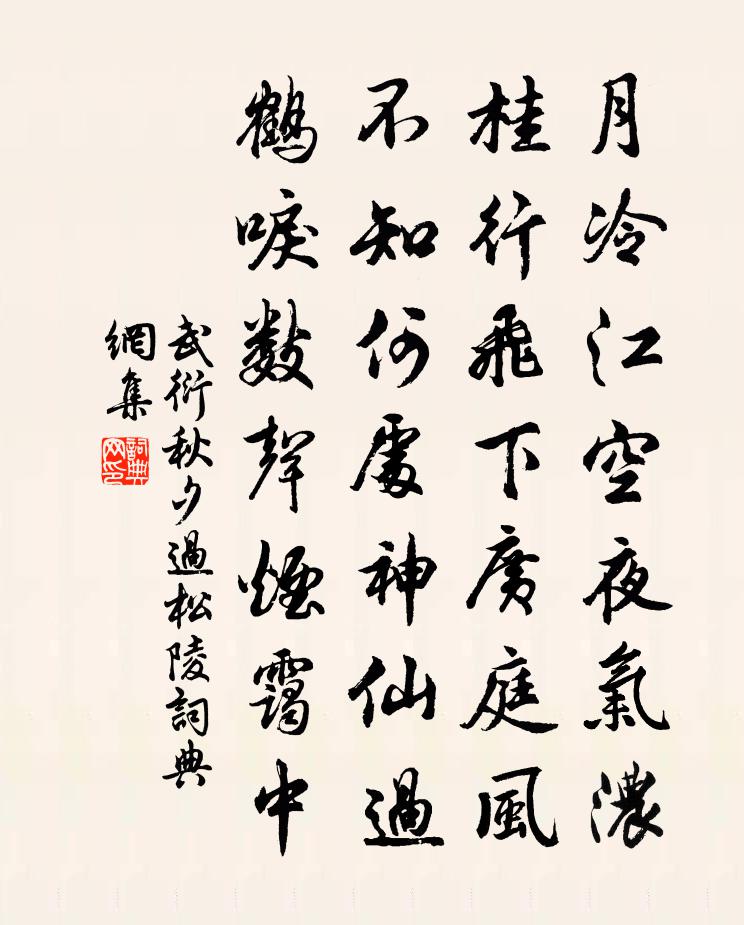 月冷江空夜氣濃
桂行飛下廣庭風
不知何處神仙過
鶴唳數聲煙靄中
武衍秋夕過松陵詞典
網集
詞典
网印